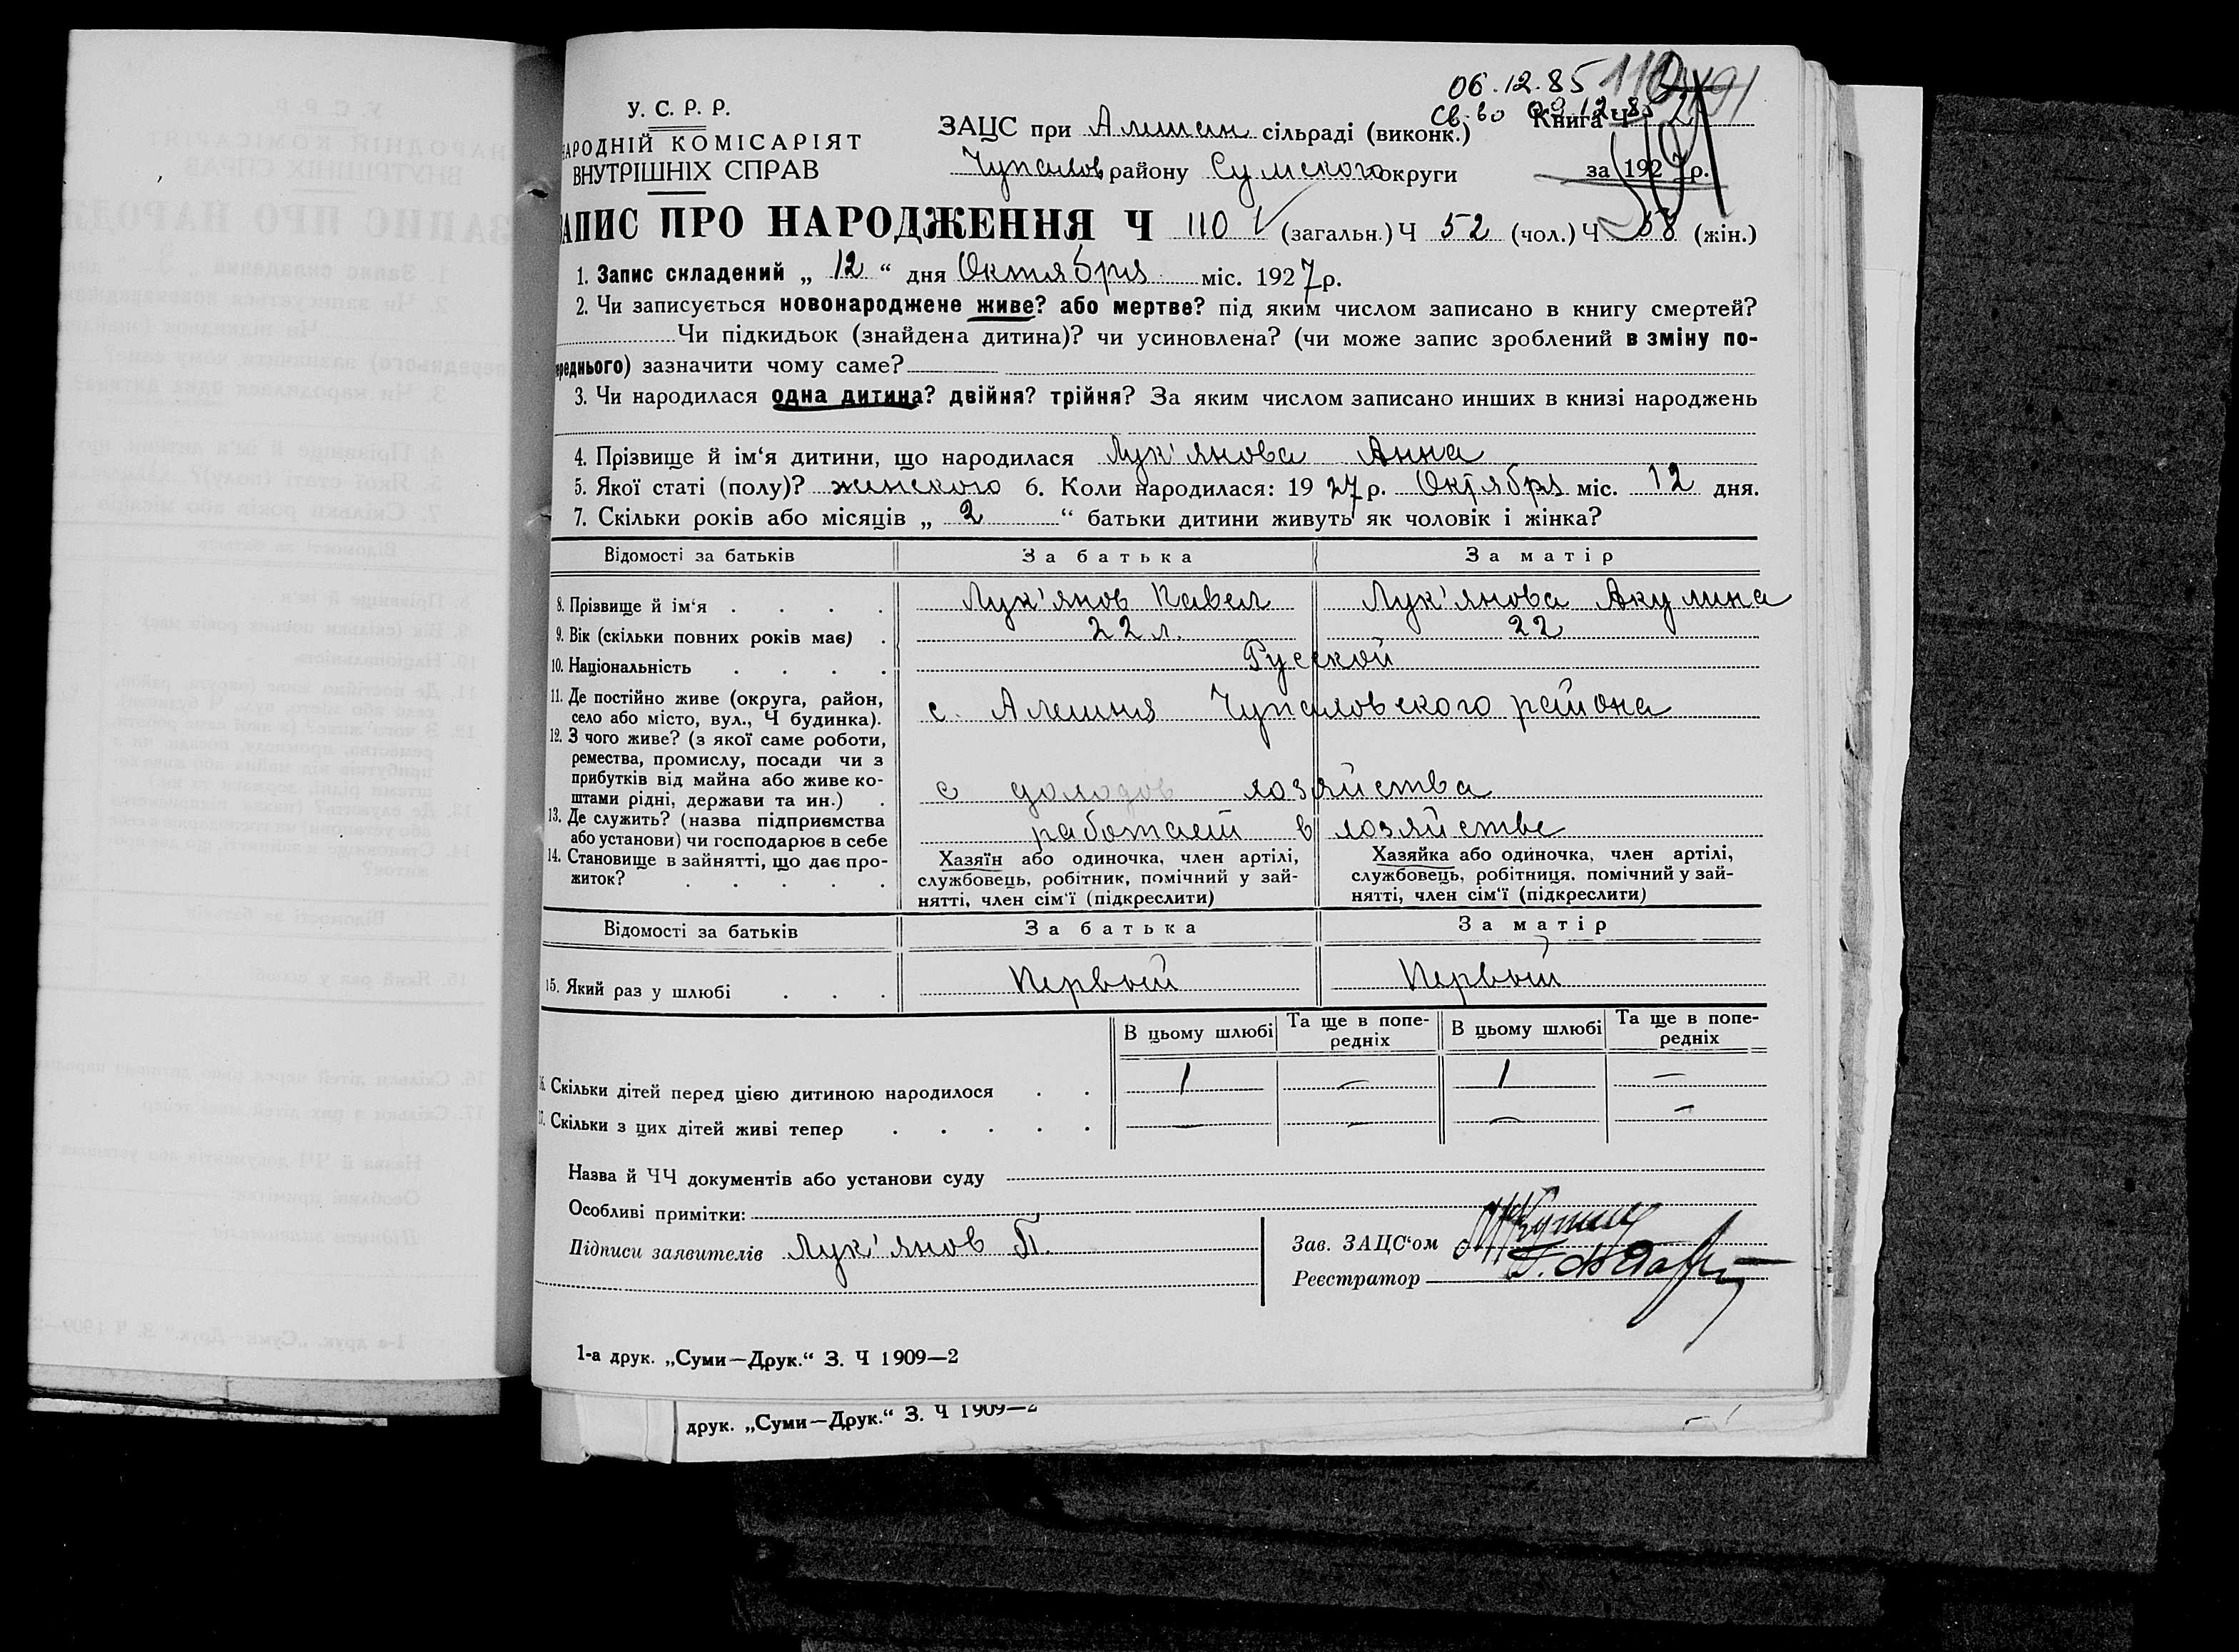 06.12.85 110
У. С. Р. Р.
НАРОДНІЙ КОМІСАРІЯТ
ВНУТРІШНІХ СПРАВ
ЗАЦС при Алешан сільраді (виконк.) Св-во 09.12.85 Книга Ч 2
Чупалов району Сумского округи за 1927 р.
ЗАПИС ПРО НАРОДЖЕННЯ Ч 110 (загальн.) Ч 52 (чол.) Ч 58 (жін.)
1. Запис складений „ 12 “ дня Октября міс. 1927 р.
2. Чи записується новонароджене живе? або мертве? під яким числом записано в книгу смертей?
Чи підкидьок (знайдена дитина)? чи усиновлена? (чи може запис зроблений в зміну по-
реднього) зазначити чому саме?
3. Чи народилася одна дитина? двійня? трійня? За яким числом записано инших в книзі народжень
4. Прізвище й ім‘я дитини, що народилася Лук'янова Анна
5. Якої статі (полу)? женского 6. Коли народилася: 1927 р. Октября міс. 12 дня.
7. Скільки років або місяців „ 2 “ батьки дитини живуть як чоловік і жінка?
Відомості за батьків За батька За матір
8. Прізвище й ім‘я . . . . Лук'янов Павел Лук'янова Акулина
9. Вік (скільки повних років має) . 22 л. 22
10. Національність . . . . Русской
11. Де постійно живе (округа, район,
село або місто, вул., Ч будинка). с. Алешня Чупаловского района
12. З чого живе? (з якої саме роботи,
ремества, промислу, посади чи з
прибутків від майна або живе ко-
штами рідні, держави та ин.) . с хозяйства
13. Де служить? (назва підприємства
або установи) чи господарює в себе работает в хозяйстве
14. Становище в зайнятті, що дає про-
житок? . . . . .
Хазяїн або одиночка, член артілі,
службовець, робітник, помічний у зай-
нятті, член сім‘ї (підкреслити)
Хазяйка або одиночка, член артілі,
службовець, робітниця, помічний у зай-
нятті, член сім‘ї (підкреслити)
Відомості за батьків За батька За матір
15. Який раз у шлюбі . . . Первый Первый
В цьому шлюбі Та ще в попе-
редніх В цьому шлюбі Та ще в попе-
редніх
16. Скільки дітей перед цією дитиною народилося . . 1 — 1 —
17. Скільки з цих дітей живі тепер . . . . . — — — —
Назва й ЧЧ документів або установи суду
Особливі примітки:
Підписи заявителів Лук'янов П.
Зав. ЗАЦС‘ом
Реєстратор
1-а друк. „Суми—Друк.“ З. Ч 1909—2
друк. „Суми—Друк.“ З. Ч 1909—2